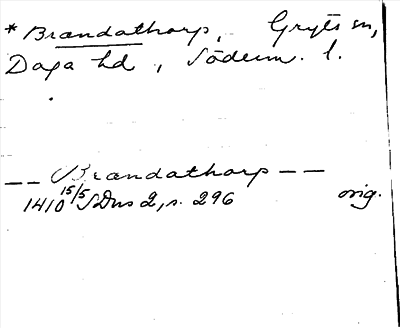 * Brændathorp, Gryts sn,
Daga hd, Söderm. l.
-- Brændathorp --
1410 15/5 SDns 2, s. 296 orig.